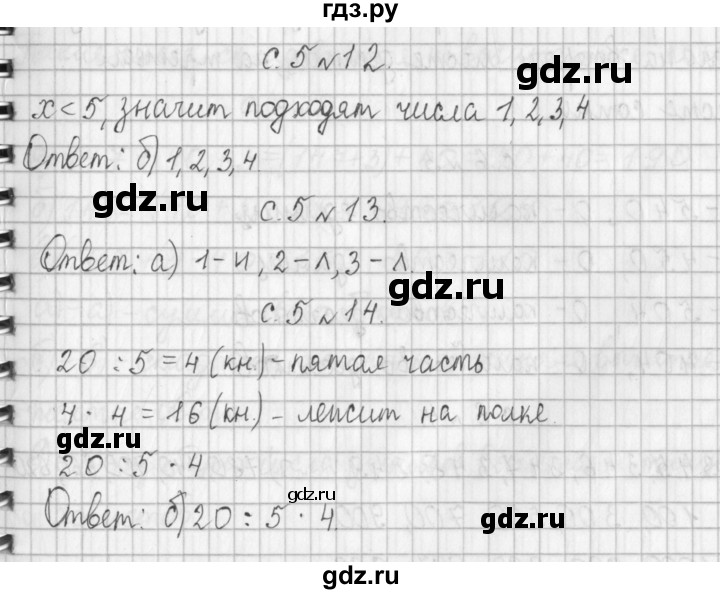 гдз.ру
с. 5 № 12.
gdz.ru
x < 5, значит подходят числа 1, 2, 3, 4
Ответ: б) 1, 2, 3, 4
gdz.ru
с. 5 № 13.
Ответ: а) 1 - И, 2 - Л, 3 - Л.
gdz.ru
с. 5 № 14.
20 : 5 = 4 (кн.) - пятая часть
4 · 4 = 16 (кн.) - лежит на полке.
gdz.ru
20 : 5 · 4
gdz.ru
Ответ: б) 20 : 5 · 4.
gdz.ru
gdz.ru